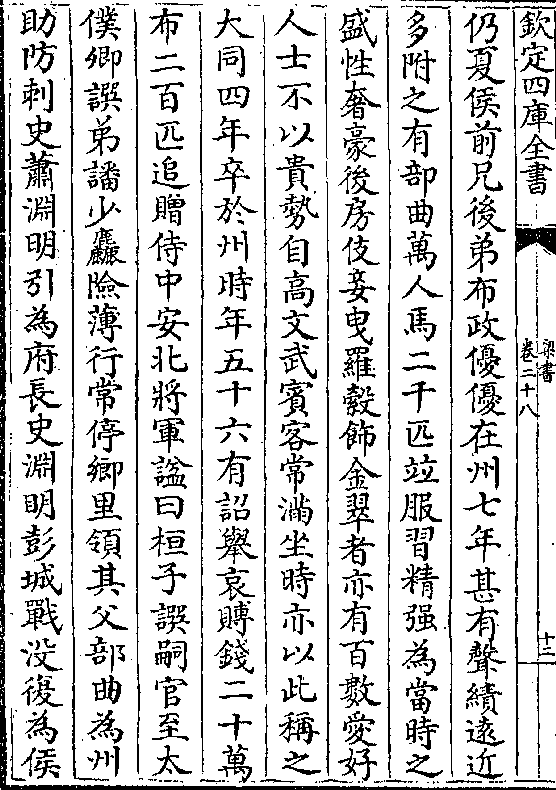 欽定四庫全書
梁書
卷二十八
十二
仍夏侯前兄後弟布政優優在州七年甚有聲績遠近
多附之有部曲萬人馬二千匹竝服習精强為當時之
盛性奢豪後房伎妾曳羅縠飾金翠者亦有百數愛好
人士不以貴勢自高文武賓客常滿坐時亦以此稱之
大同四年卒於州時年五十六有詔舉哀賻錢二十萬
布二百匹追贈侍中安北將軍諡曰桓子譔嗣官至太
僕卿譔弟譒少麤險薄行常停鄉里領其父部曲為州
助防刺史蕭淵明引為府長史淵明彭城戰没復為侯